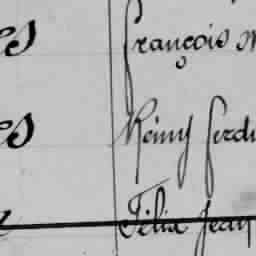 es françois
es Rémy ferd
Félix Jean